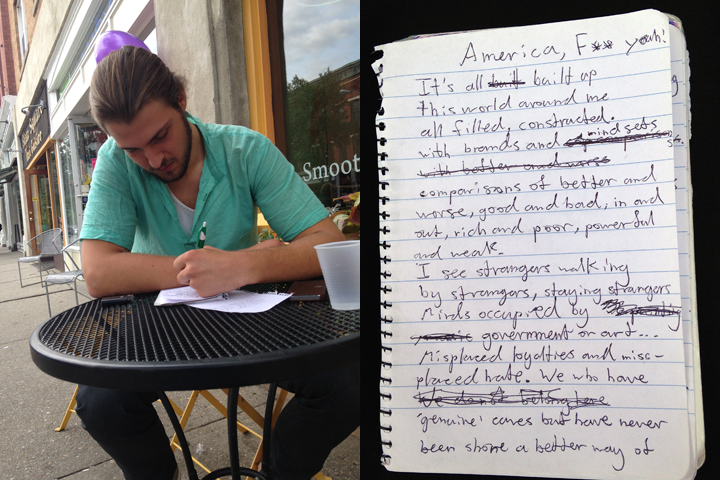 Smoot
America, F** yeah!
It's all built built up
this world around me
all filled, constructed.
with brands and mindsets
with better and worse
comparisons of better and
worse, good and bad, in and
out, rich and poor, powerful
and weak.
I see strangers walking
by strangers, staying strangers
Minds occupied by
government or art...
Misplaced loyalties and misc-
placed hate. We who have
We don't belong here
'genuine' cares but have never
been shone a better way of